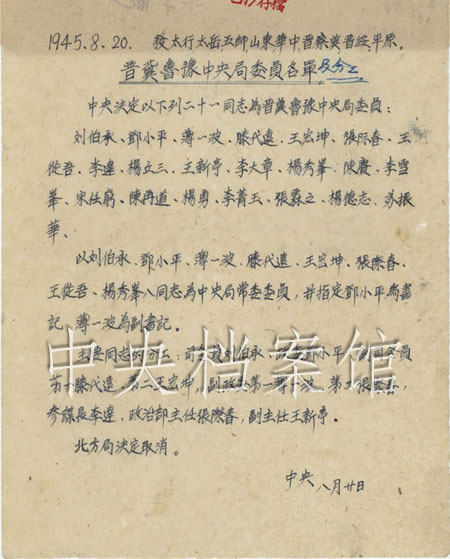 1945.8.20. 发太行太岳五師山東華中晋察冀晋綏平原。
晋冀魯豫中央局委員名單及分工
中央決定以下列二十一同志為晋冀魯豫中央局委員:
刘伯承、鄧小平、薄一波、滕代遠、王宏坤、張际春、王
從吾、李達、楊立三、王新亭、李大章、楊秀峯、陳賡、李雪
峯、宋任窮、陳再道、楊勇、李菁玉、張霖之、楊德志、苏振
華、
以刘伯承、鄧小平、薄一波、滕代遠、王宏坤、張際春、
王從吾、楊秀峯八同志為中央局常委委員,并指定鄧小平為書
記、薄一波為副書記。
主要同志的分工:司令員刘伯承、政委鄧小平、副司令員
第一滕代遠、第二王宏坤,副政委第一薄一波、第二張際春,
參謀長李達,政治部主任張際春,副主任王新亭。
北方局決定取消。
中央 八月廿日
中央档案馆